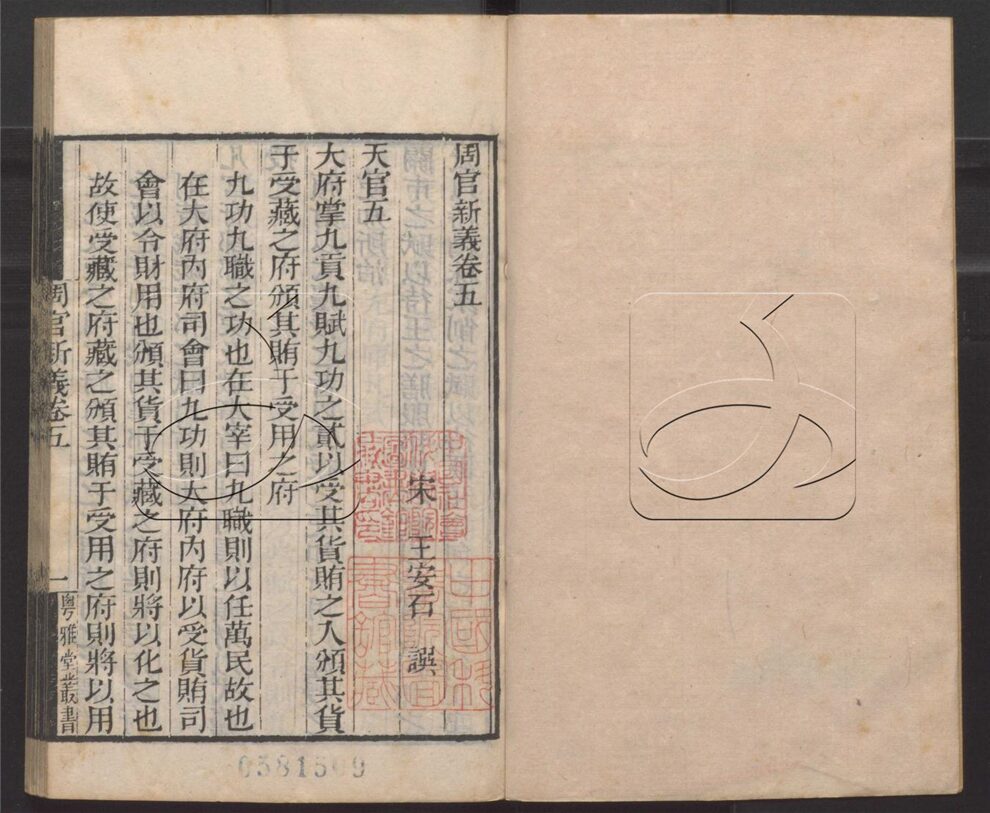 周官新義卷五
宋　王安石　譔
天官五
大府掌九貢九賦九功之貳以受其貨賄之入頒其貨
于受藏之府頒其賄于受用之府
九功九職之功也在大宰曰九職則以任萬民故也
在大府內府司會曰九功則大府內府以受貨賄司
會以令財用也頒其貨于受藏之府則將以化之也
故使受藏之府藏之頒其賄于受用之府則將以用
周官新義卷五
一
粵雅堂叢書
0581509